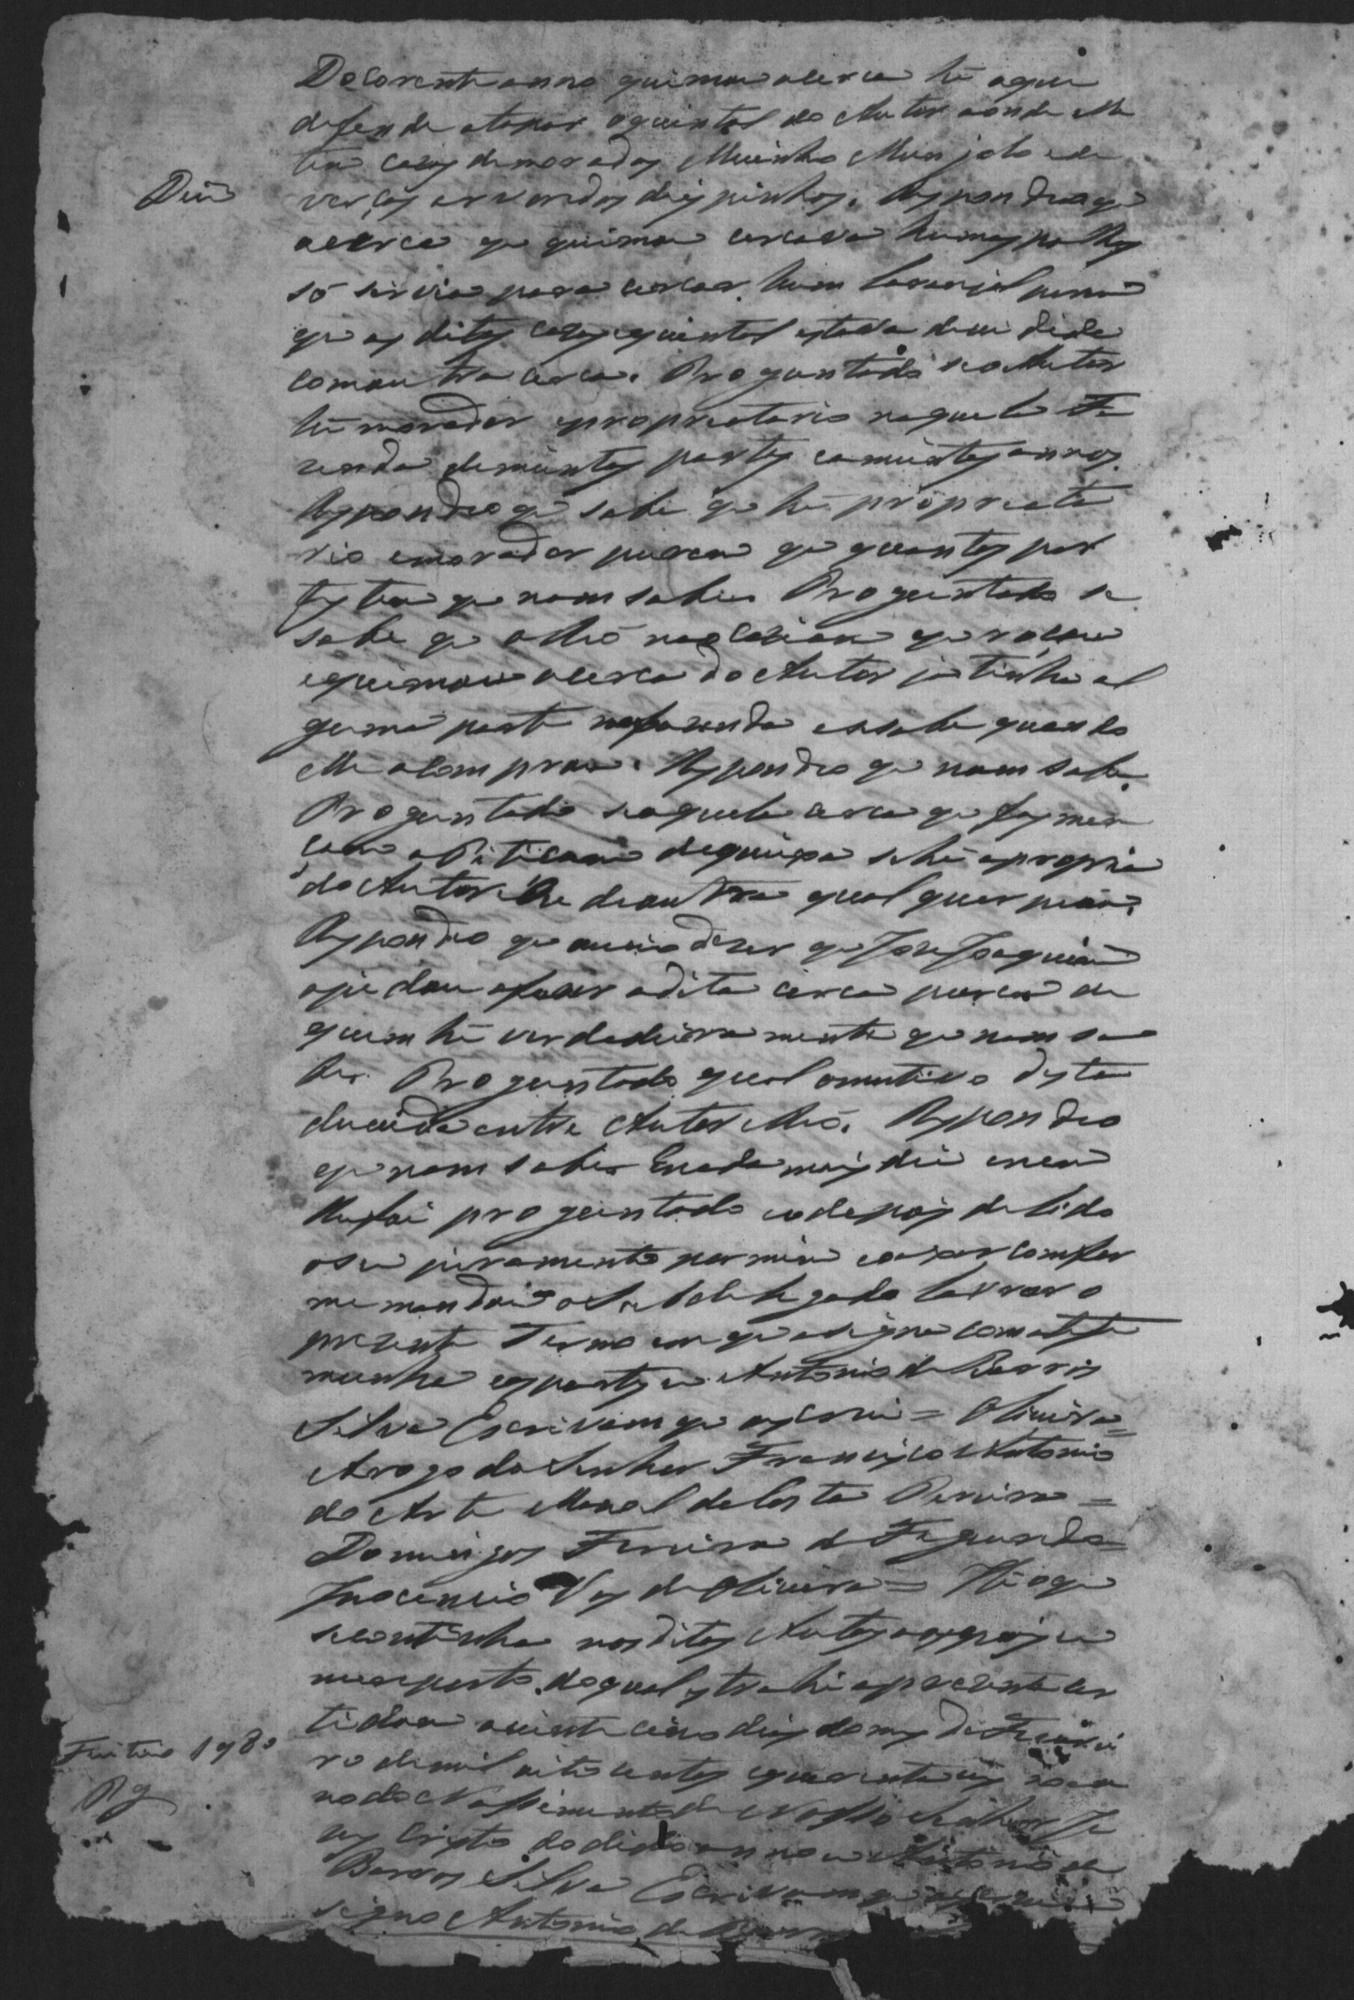 Do Corente anno queimou acerca hé aque
defende etapar oquintal do Autor aonde Elle
tem cazas demoradas Muinho Munjolo e de
Diu
verças arvoredos di espinhos. Respondeo que
acerca que queimou cercava humas palhas
só servia para cercar hum laranjal porem
que as ditas cazas equintal estava deve dido
comoutra cerca. Proguntado seo Autor
hé morador eproprietario naquela Fa
zenda demuntas partes eamuintos annos.
Respondeo que sabe que hé proprieta
rio emorador porem que quantas par
tes tem que nam sabe. Proguntado se
sabe que o Reó naocaziam que roçou
equeimou acerca do Autor ja tinha al
guma parte nafazenda esesabe quando
elle acomprou. Respondeo que nam sabe.
Proguntado seaquela cerca que faz men
cam aPiticam dequeixa sehé apropria
do Autor ou deoutra qual quer pessoa.
Respondeo que ouvio dizer que Joze Joaquim
ajudou afazer adita cerca porem de
quem hé verdadeiramente que nam sa
be. Proguntado qual omutivo desta
duvida entre Autor eReó. Respondeo
que nam sabe. Enada mais diu enem
lhefoi proguntado edepois de lido
oseu juramento per mim eoaxar comfor
me mandou oSubdelegado lavrar o
prezente Termo em que asigna comateste
munha easpartes eu Antonio de Barros
Silva Escrivam que escrevi = Oliveira =
Arogo do Senhor Francisco Antonio
do Arte Manoel da Costa Pereira =
Domingos Ferreira de Figueredo =
Inocencio Vas de Oliveira = Hé oque
secontinha nosditos Autos
meereporto doqual estrahi aprezente cer
tidam aovinte cinco dias domes de Fevrei
ro demil oito centos equarenta
nodo Nassimento de Nosso Senhor Je
zus Cristo dodito anno eu Antonio de
Barros Silva Escrivam que escrevi
signo Antonio de Barros
Feitio 1980
Rg